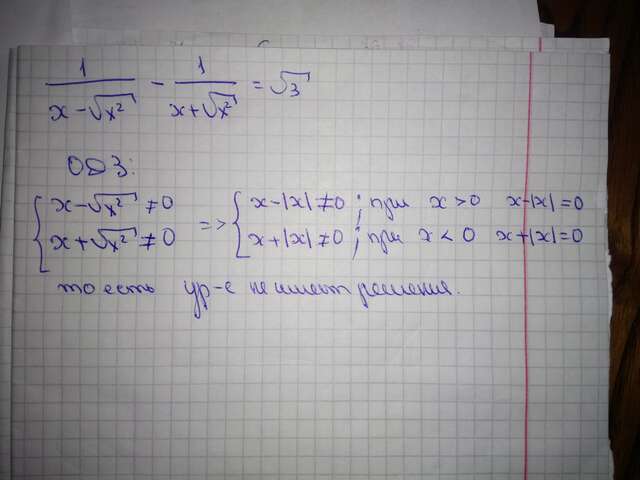 1/(x-√x²) - 1/(x+√x²) = √3
ОДЗ:
{ x-√x² ≠0 => { x-|x| ≠0 ; при x>0 x-|x|=0
x+√x² ≠0 x+|x| ≠0 ; при x<0 x+|x|=0
то есть ур-е не имеет решения.